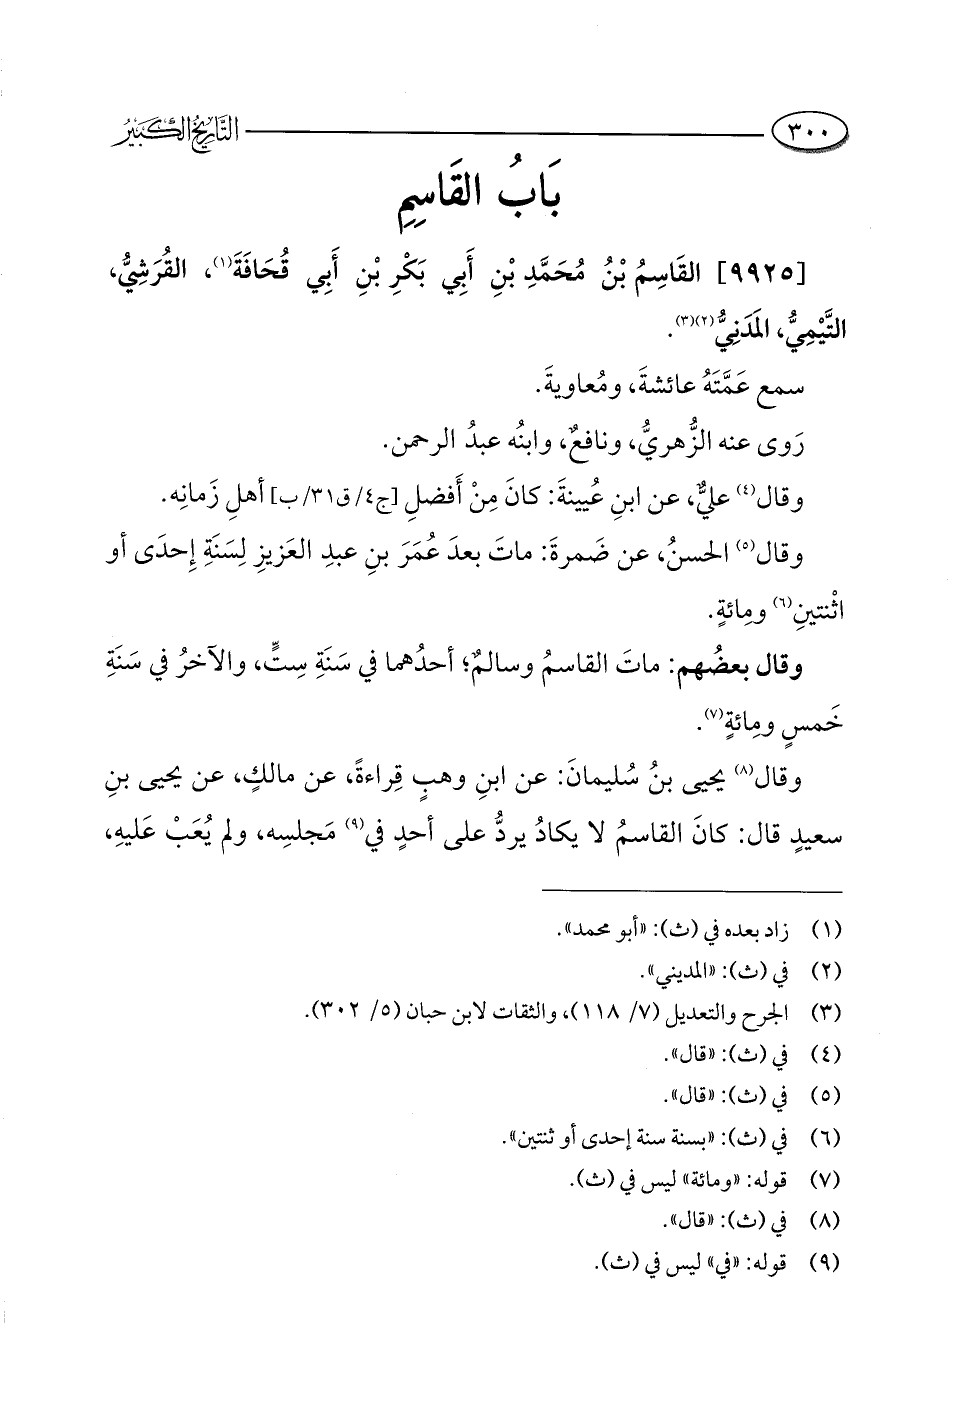 ٣٠٠ التاريخ الكبير
بَابُ القَاسِمِ
[٩٩٢٥] القَاسِمُ بْنُ مُحَمَّدِ بْنِ أَبِي بَكْرِ بْنِ أَبِي قُحَافَةَ(١)، القُرَشِيُّ،
التَّيْمِيُّ، المَدَنِيُّ(٢)(٣).
سمع عَمَّتَهُ عائشةَ، ومُعاويةَ.
رَوى عنه الزُّهريُّ، ونافعٌ، وابنُه عبدُ الرحمن.
وقال(٤) عليٌّ، عن ابنِ عُيينةَ: كانَ مِنْ أَفضلِ [ج٤/ ق٣١/ ب] أهلِ زَمانِه.
وقال(٥) الحسنُ، عن ضَمرةَ: ماتَ بعدَ عُمَرَ بنِ عبدِ العَزيزِ لِسَنَةِ إِحدَى أو
اثْنتينِ(٦) ومِائةٍ.
وقال بعضُهم: ماتَ القاسمُ وسالمٌ؛ أحدُهما في سَنَةِ سِتٍّ، والآخرُ في سَنَةِ
خَمسٍ ومِائةٍ(٧).
وقال(٨) يحيى بنُ سُليمانَ: عن ابنِ وهبٍ قِراءةً، عن مالكٍ، عن يحيى بنِ
سعيدٍ قال: كانَ القاسمُ لا يكادُ يردُّ على أحدٍ في(٩) مَجلسِه، ولم يُعَبْ عَليهِ،
(١) زاد بعده في (ث): «أبو محمد».
(٢) في (ث): «المديني».
(٣) الجرح والتعديل (٧/ ١١٨)، والثقات لابن حبان (٥/ ٣٠٢).
(٤) في (ث): «قال».
(٥) في (ث): «قال».
(٦) في (ث): «بسنة سنة إحدى أو ثنتين».
(٧) قوله: «ومائة» ليس في (ث).
(٨) في (ث): «قال».
(٩) قوله: «في» ليس في (ث).